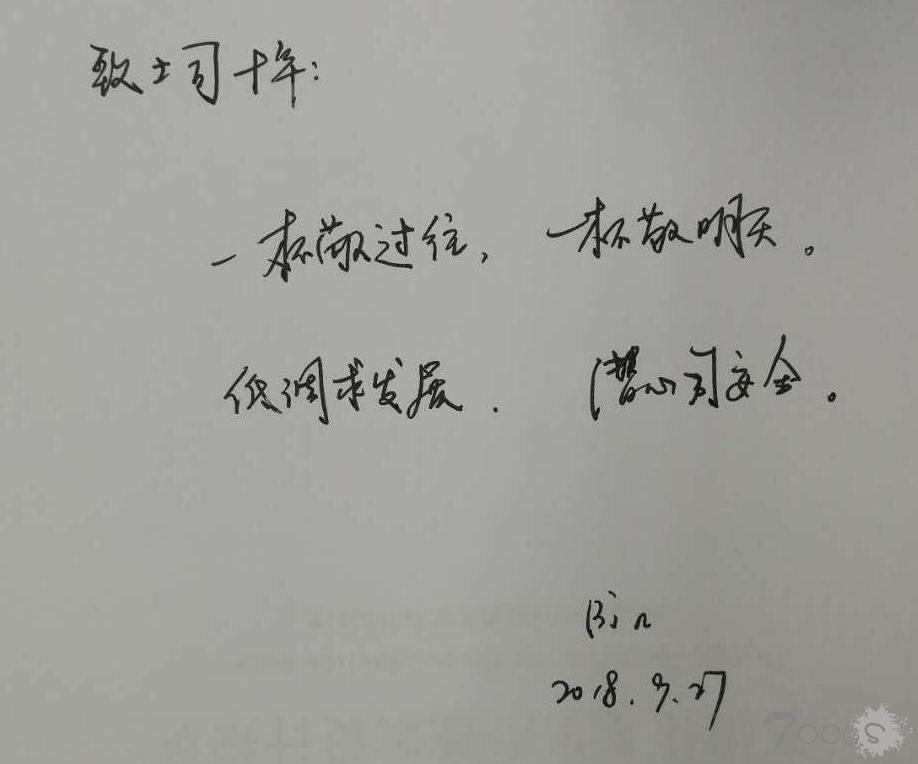 致土司十年:
一杯敬过往, 一杯敬明天。
低调求发展. 潜心习安全。
Bin
2018.9.27